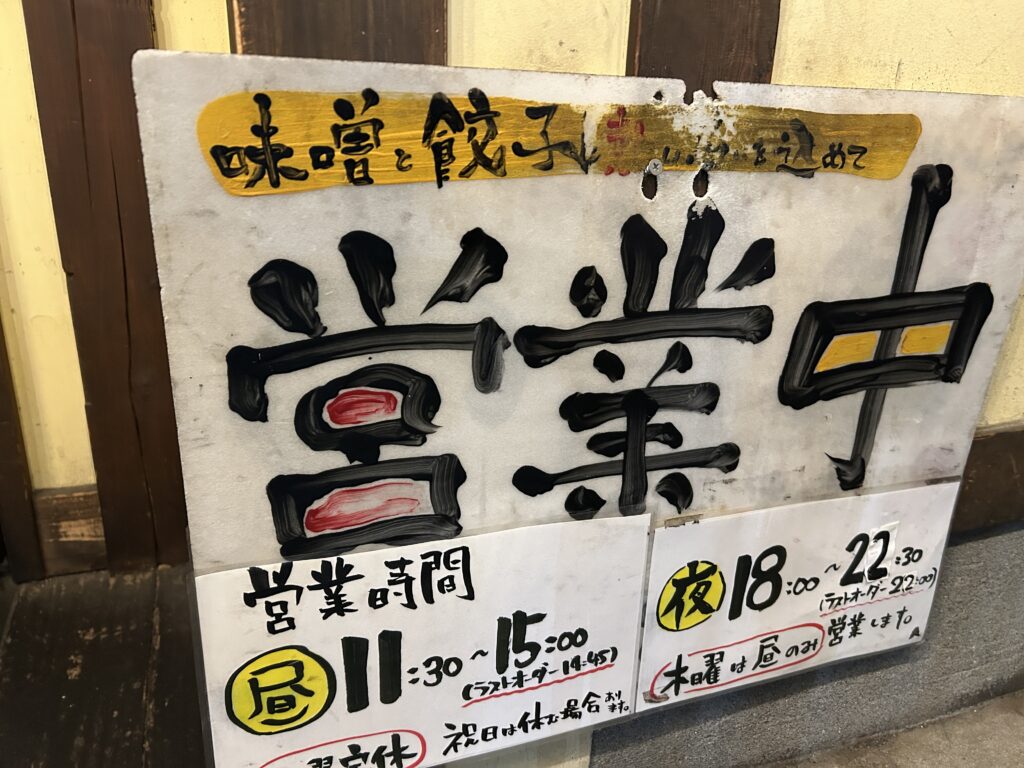 味噌と餃子に を込めて
営業中
営業時間
昼 11:30~15:00
(ラストオーダー14:45)
曜定休
祝日は休む場合あります。
夜 18:00~22:30
(ラストオーダー22:00)
木曜は昼のみ営業します。